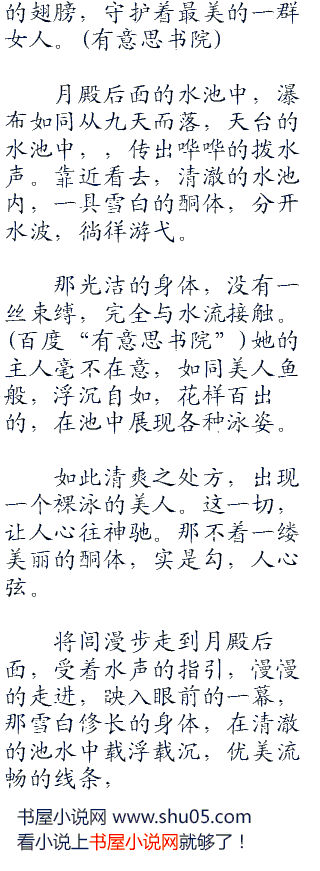 的翅膀，守护着最美的一群
女人。(有意思书院)
月殿后面的水池中，瀑
布如同从九天而落，天台的
水池中，，传出哗哗的拨水
声。靠近看去，清澈的水池
内，一具雪白的酮体，分开
水波，徜徉游弋。
那光洁的身体，没有一
丝束缚，完全与水流接触。
(百度“有意思书院”)她的
主人毫不在意，如同美人鱼
般，浮沉自如，花样百出
的，在池中展现各种泳姿。
如此清爽之处方，出现
一个裸泳的美人。这一切，
让人心往神驰。那不着一缕
美丽的酮体，实是勾，人心
弦。
将闾漫步走到月殿后
面，受着水声的指引，慢慢
的走进，映入眼前的一幕，
那雪白修长的身体，在清澈
的池水中载浮载沉，优美流
畅的线条，
书屋小说网 www.shu05.com
看小说上书屋小说网就够了！